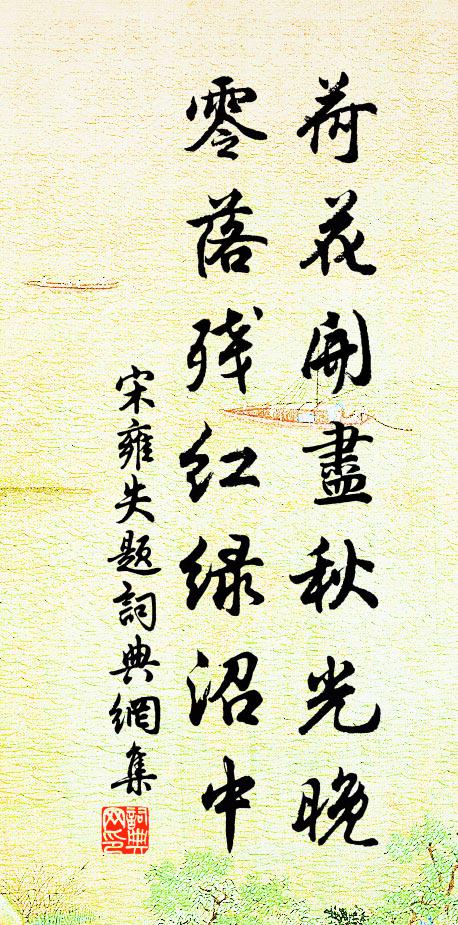 荷花開盡秋光晚
零落残红緑沼中
宋雍失题詞典網集
詞典網印